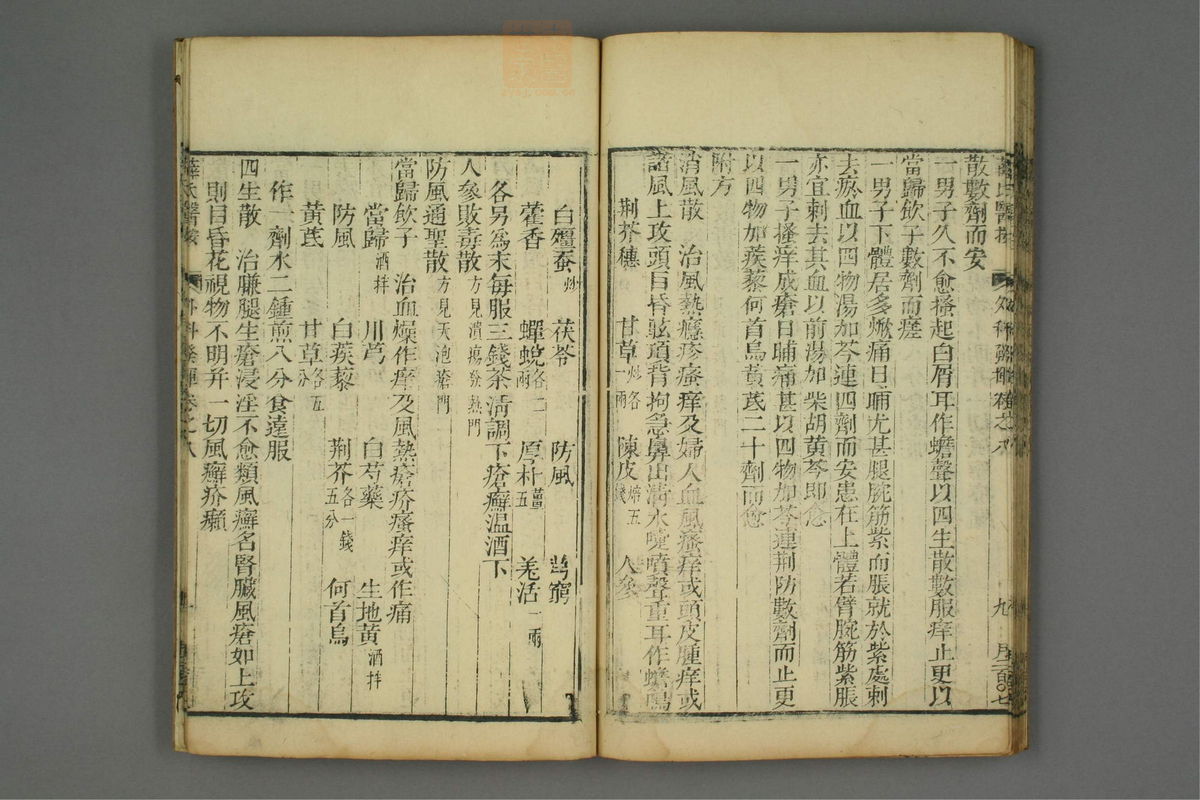 散數劑而安
一男子久不愈搔起白屑耳作蟬聲以四生散數服痒止更以
當歸飲子數劑而痊
一男子下體居多焮痛日晡尤甚腿腕筋紫而脹就於紫處刺
去瘀血以四物湯加芩連四劑而安患在上體若臂腕筋紫脹
亦宜刺去其血以前湯加柴胡黃芩即愈
一男子搔痒成瘡日晡痛甚以四物加芩連荆防數劑而止更
以四物加蒺藜何首烏黃芪二十劑而愈
附方
消風散 治風熱癮疹瘙痒及婦人血風瘙痒或頭皮腫痒或
諸風上攻頭目昏眩項背拘急鼻出清水嚏噴聲重耳作蟬鳴
荆芥穗 甘草炒各一兩 陳皮焙五錢 人參
白殭蚕炒 茯苓 防風 芎藭
藿香 蟬蛻各二兩 厚朴薑五 羌活一兩
各另為末每服三錢茶清調下瘡癬温酒下
人參敗毒散方見潰瘍發熱門
防風通聖散方見天泡瘡門
當歸飲子 治血燥作痒及風熱瘡疥瘙痒或作痛
當歸酒拌 川芎 白芍藥 生地黃酒拌
防風 白蒺藜 荆芥各一錢五分 何首烏
黃芪 甘草各五分
作一劑水二鍾煎八分食遠服
四生散 治臁腿生瘡浸淫不愈類風癬名腎臟風瘡如上攻
則目昏花視物不明并一切風癬疥癩
薛氏醫按 外科發揮卷之八